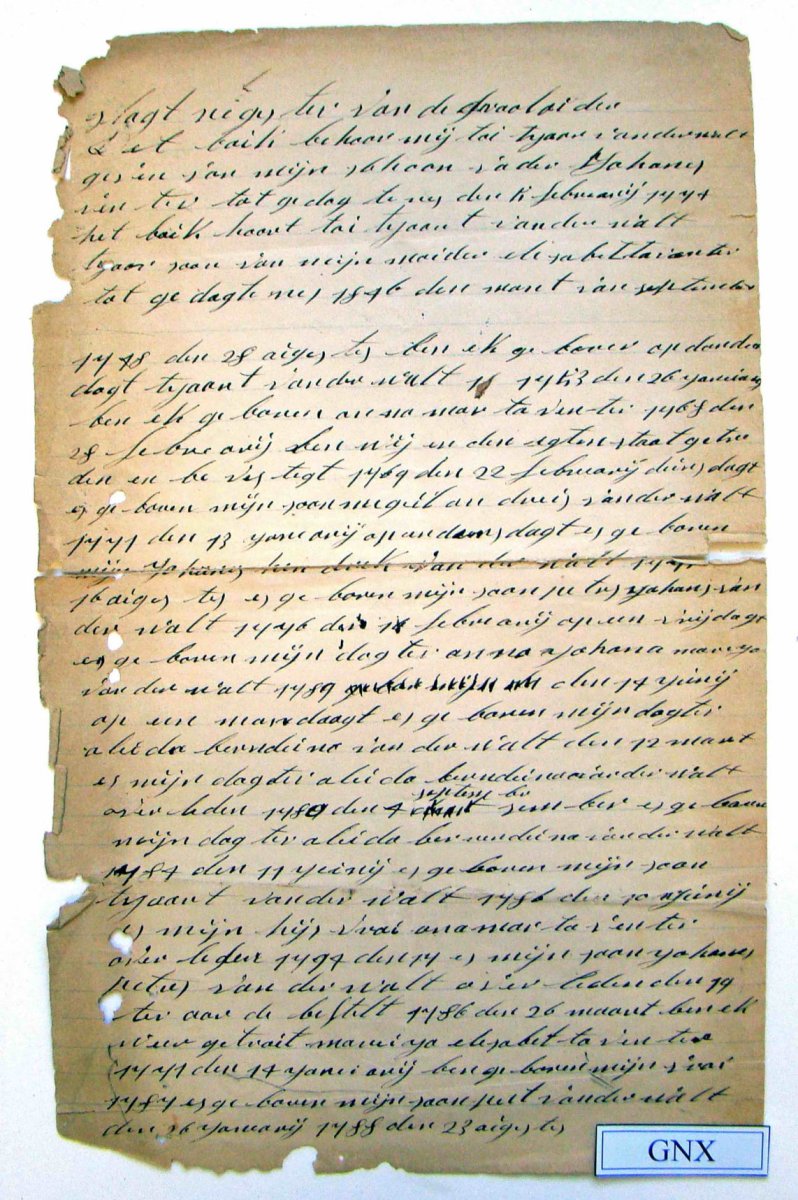 slagt regester van de
het boik behoor mij toi tyaar vanderwalt
geven van mijn schoon vader Johanes
venter tot gedagtenes den februarij 1774
het boik hoort toi tyaart van der walt
tyaar soon van mijn moider elesabet ta venter
tot gedagtenes 1846 den mant van september
1748 den 28 aigestes ben ek geboren op donder
dagt tyaart van der walt 1753 den 26
ben ek geboren anna marta venter 1768 den
28 febreowij ben wij en den egten staat getre
den en bevestegt 1769 den 22 februarij deinsdagt
es geboren mijn soon van der walt
1771 den 13 yaneuwarij op sdagt es geboren
mijn Yohanes hendrick van der walt
16 aigestes es geboren mijn soon petres yohanes van
der walt 1776 den februarij op een vrijdagt
es geboren mijn dogter anna yohana mareya
van der walt 1780 den 14 yeinij
op een maandagt es geboren mijn dogter
aleida berndeina van der walt den 12 maart
es mijn dogter aleida berndeina van der walt
over leden den 4 september es geboren
mijn dogter aleida berendeina van der walt
1784 den 11 yeinij es geboren mijn soon
tyaart van der walt 1786 den yeinij
es mijn hijs vroi ana marta venter
over leden 1794 den 17 es mijn soon yohanes
petres van der walt over leden den 19
ter aar de bestelt 1786 den 26 maart ben ek
weer getroit mareiya elesabet ta venter
1771 den 14 yaneiowij ben geboren mijn vroi
1787 es geboren mijn soon peet van der walt
den 26 yanwarij 1788 den 23 aigestes
GNX